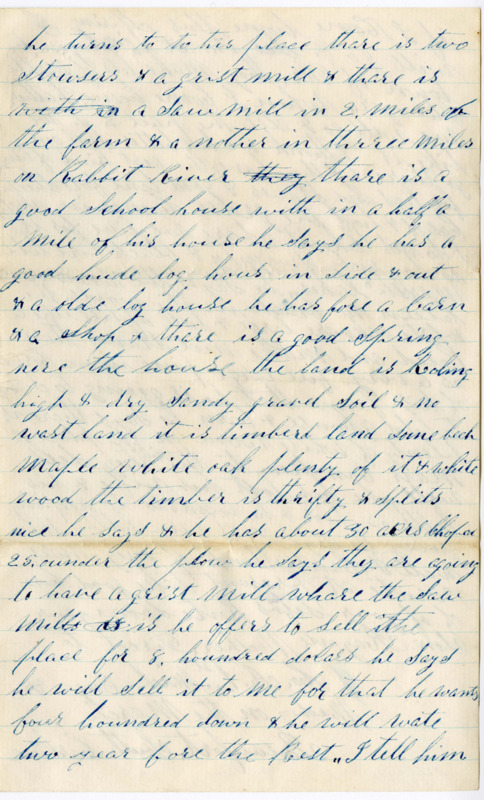 he turns to to his place thare is two
Stowsers & a grist mill & thare is
with in a Saw mill in 2. miles of
the farm & a nother in thrree miles
on Rabbit River they thare is a
good School house with in a half a
mile of his house he Says he has a
good hude log hous in Side & out
& a olde log house he has fore a barn
& a Shop & thare is a good Spring
nere the house the land is Roling
high & dry Sandy gravel Soil & no
wast land it is timberd land Some bech
maple white oak plenty of it & white
wood the timber is thrifty & Splits
nice he Says & he has about 30 acers Choped
25. ounder the plow he Says they are agoing
to have a grist mill whare the Saw
mill is he offers to Sell the
place for 8. houndred dolars he Says
he will Sell it to me for that he wants
four houndred down & he will wate
two year fore the Rest,, I tell him